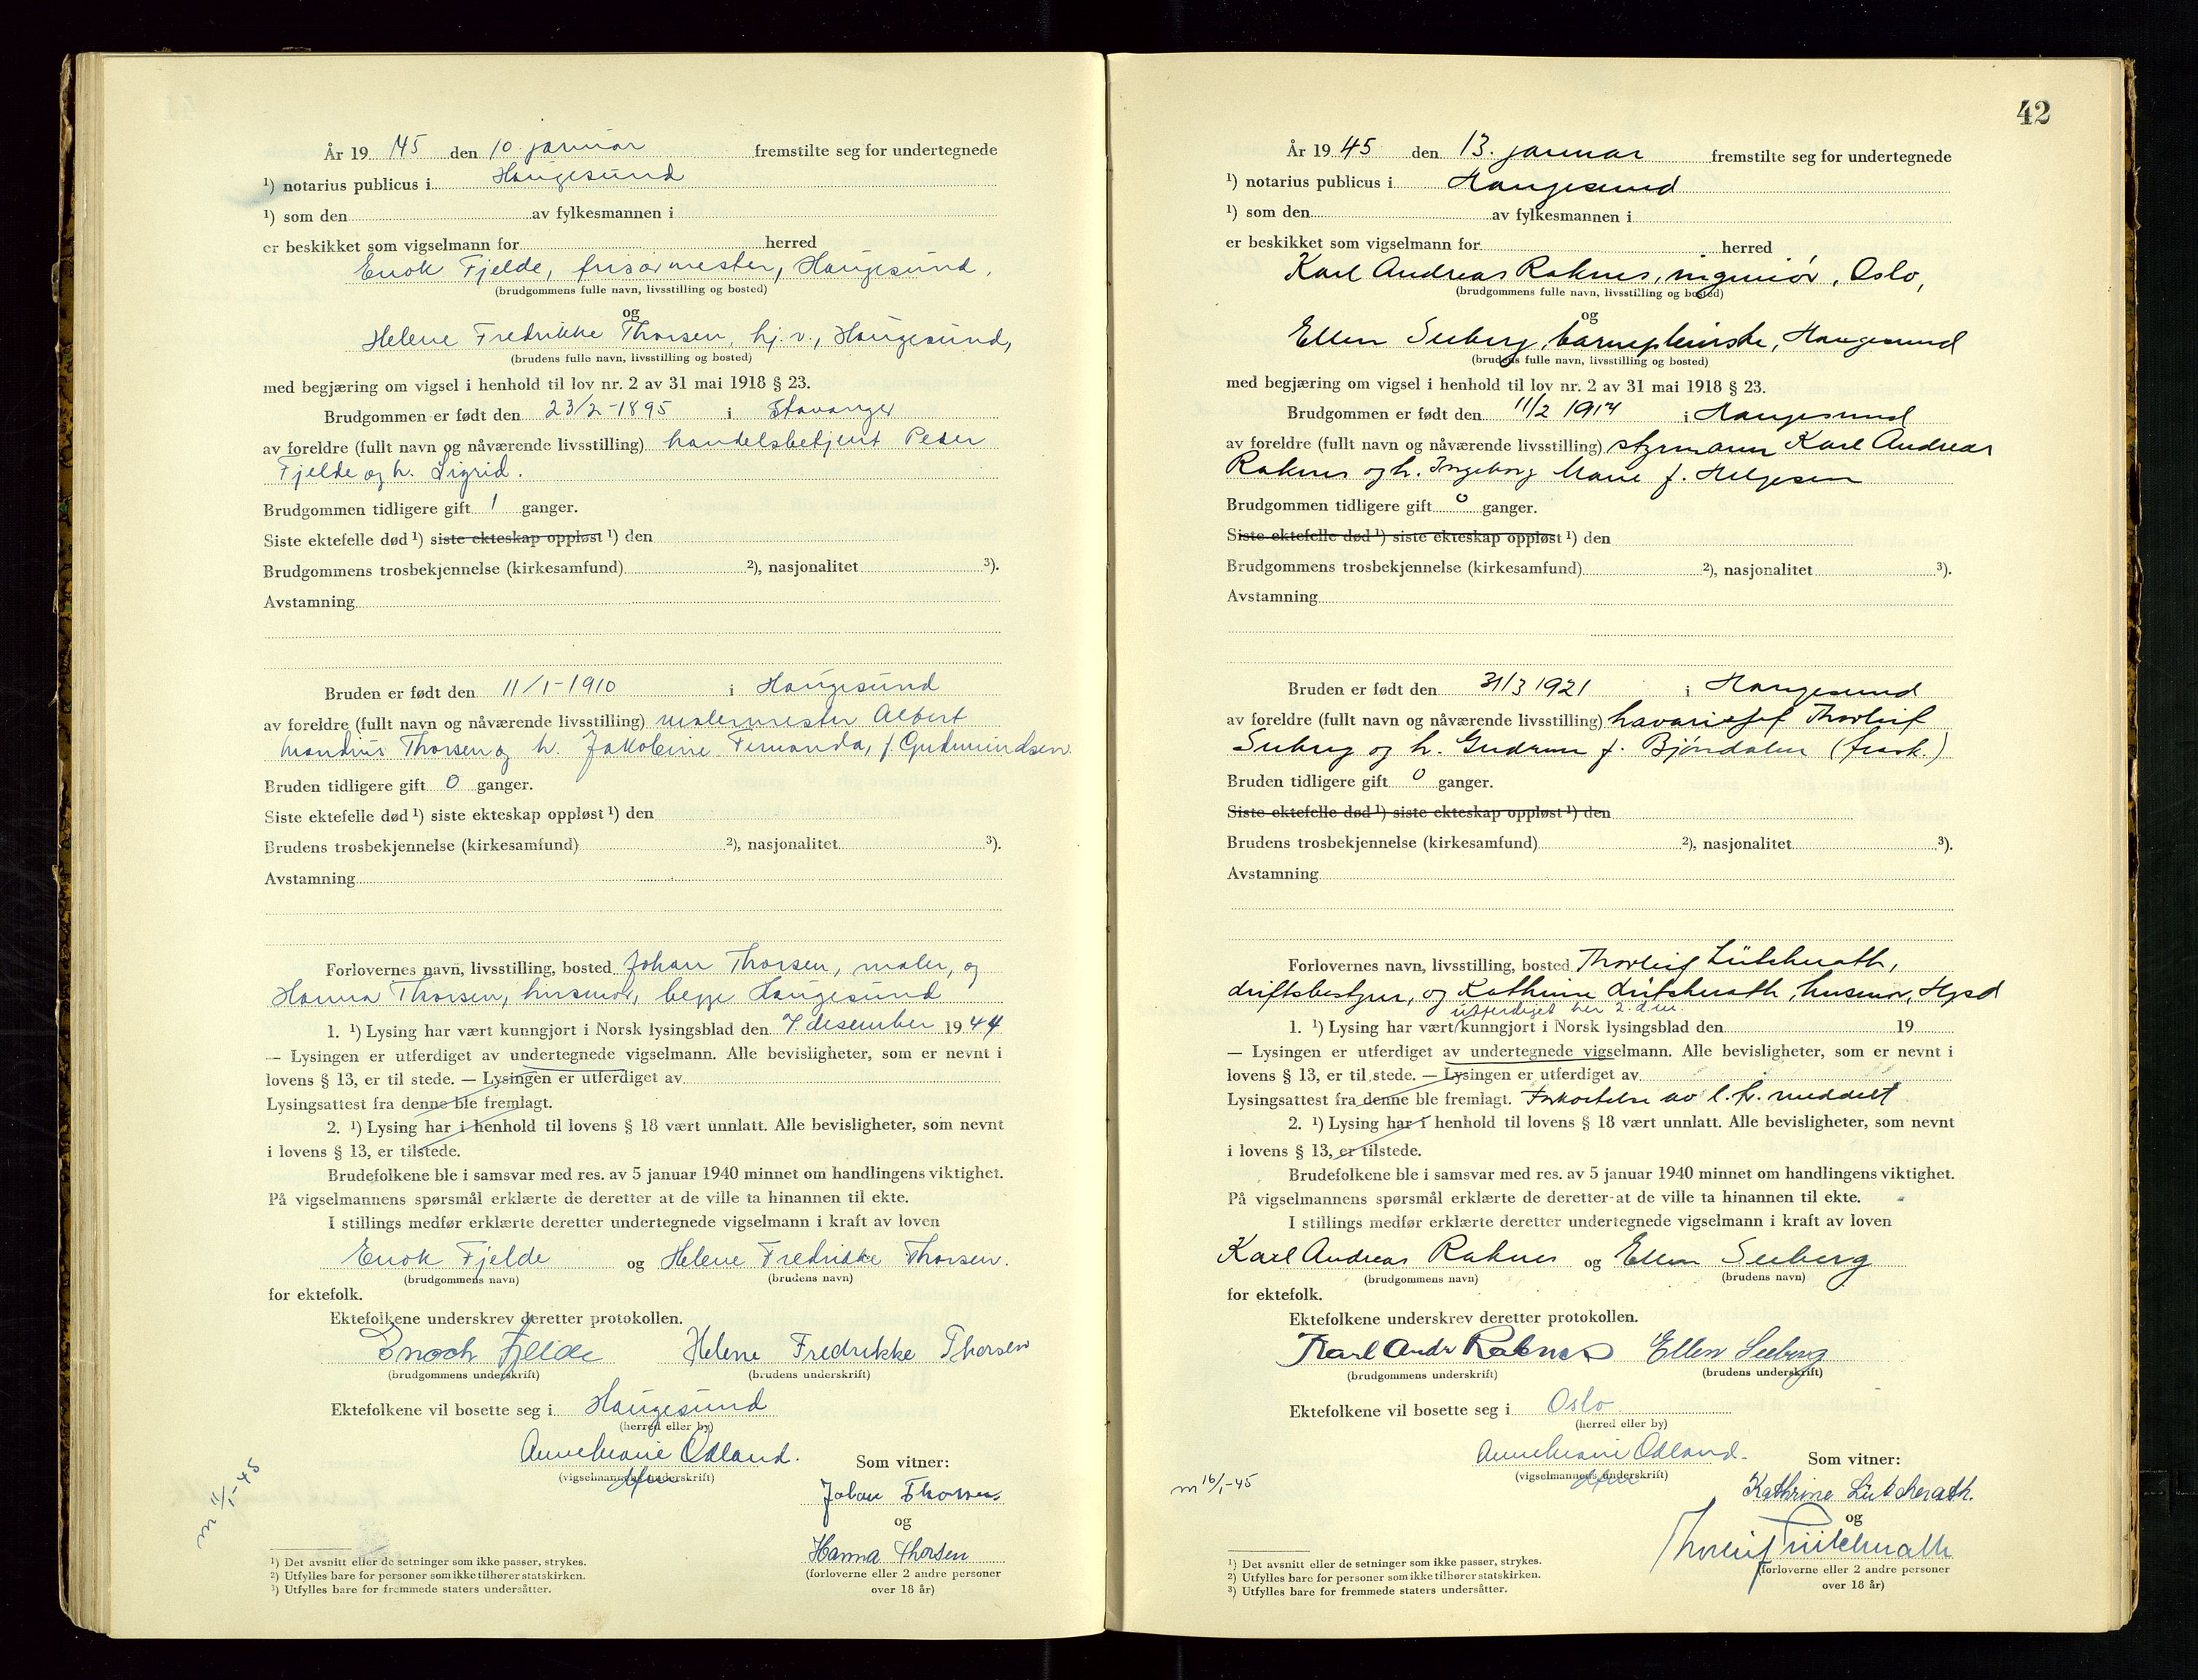 År 19 45 den 10. januar fremstilte seg for undertegnede
¹) notarius publicus i Haugesund
¹) som den av fylkesmannen i
er beskikket som vigselmann for herred
Enok Fjelde, frisørmester, Haugesund,
(brudgommens fulle navn, livsstilling og bosted)
og
Helene Fredrikke Thorsen, hj.v., Haugesund,
(brudens fulle navn, livsstilling og bosted)
med begjæring om vigsel i henhold til lov nr. 2 av 31 mai 1918 § 23.
Brudgommen er født den 23/2-1895 i Stavanger
av foreldre (fullt navn og nåværende livsstilling) handelsbetjent Peder
Fjelde og h. Sigrid.
Brudgommen tidligere gift 1 ganger.
Siste ektefelle død ¹) siste ekteskap oppløst ¹) den
Brudgommens trosbekjennelse (kirkesamfund) ²), nasjonalitet ³).
Avstamning
Bruden er født den 11/1-1910 i Haugesund
av foreldre (fullt navn og nåværende livsstilling) malermester Albert
Mandrus Thorsen og h. Jakobine Fernanda, f. Gudmundsen.
Bruden tidligere gift 0 ganger.
Siste ektefelle død ¹) siste ekteskap oppløst ¹) den
Brudens trosbekjennelse (kirkesamfund) ²), nasjonalitet ³).
Avstamning
Forlovernes navn, livsstilling, bosted Johan Thorsen, maler, og
Hanna Thorsen, husmor, begge Haugesund
1. ¹) Lysing har vært kunngjort i Norsk lysingsblad den 7. desember 19 44
— Lysingen er utferdiget av undertegnede vigselmann. Alle bevisligheter, som er nevnt i
lovens § 13, er til stede. — Lysingen er utferdiget av
Lysingsattest fra denne ble fremlagt.
2. ¹) Lysing har i henhold til lovens § 18 vært unnlatt. Alle bevisligheter, som nevnt
i lovens § 13, er tilstede.
Brudefolkene ble i samsvar med res. av 5 januar 1940 minnet om handlingens viktighet.
På vigselmannens spørsmål erklærte de deretter at de ville ta hinannen til ekte.
I stillings medfør erklærte deretter undertegnede vigselmann i kraft av loven
Enok Fjelde og Helene Fredrikke Thorsen.
(brudgommens navn) (brudens navn)
for ektefolk.
Ektefolkene underskrev deretter protokollen.
Enoch Fjelde Helene Fredrikke Thorsen
(brudgommens underskrift) (brudens underskrift)
Ektefolkene vil bosette seg i Haugesund
(herred eller by)
Anne Marie Odland.
(vigselmannens underskrift)
Som vitner:
Johan Thorsen
og
Hanna Thorsen
(forloverne eller 2 andre personer
over 18 år)
m 11/1-45
¹) Det avsnitt eller de setninger som ikke passer, strykes.
²) Utfylles bare for personer som ikke tilhører statskirken.
³) Utfylles bare for fremmede staters undersåtter.
42
År 19 45 den 13. januar fremstilte seg for undertegnede
¹) notarius publicus i Haugesund
¹) som den av fylkesmannen i
er beskikket som vigselmann for herred
Karl Andreas Raknes, ingeniør, Oslo,
(brudgommens fulle navn, livsstilling og bosted)
og
Ellen Seeberg, barnepleierske, Haugesund
(brudens fulle navn, livsstilling og bosted)
med begjæring om vigsel i henhold til lov nr. 2 av 31 mai 1918 § 23.
Brudgommen er født den 11/2 1914 i Haugesund
av foreldre (fullt navn og nåværende livsstilling) styrmann Karl Andreas
Raknes og h. Ingeborg Marie f. Helgesen
Brudgommen tidligere gift 0 ganger.
Siste ektefelle død ¹) siste ekteskap oppløst ¹) den
Brudgommens trosbekjennelse (kirkesamfund) ²), nasjonalitet ³).
Avstamning
Bruden er født den 31/3 1921 i Haugesund
av foreldre (fullt navn og nåværende livsstilling) havarisjef Thorleif
Seeberg og h. Gudrun f. Bjørndalen (frask.)
Bruden tidligere gift 0 ganger.
Siste ektefelle død ¹) siste ekteskap oppløst ¹) den
Brudens trosbekjennelse (kirkesamfund) ²), nasjonalitet ³).
Avstamning
Forlovernes navn, livsstilling, bosted Thorleif Lütcherath,
driftsbestyrer, og Kathrine Lütcherath, husmor, Hgsd
utferdiget her 2. d.m.
1. ¹) Lysing har vært kunngjort i Norsk lysingsblad den 19
— Lysingen er utferdiget av undertegnede vigselmann. Alle bevisligheter, som er nevnt i
lovens § 13, er til stede. — Lysingen er utferdiget av
Lysingsattest fra denne ble fremlagt. Forkortelse av l.t. meddelt
2. ¹) Lysing har i henhold til lovens § 18 vært unnlatt. Alle bevisligheter, som nevnt
i lovens § 13, er tilstede.
Brudefolkene ble i samsvar med res. av 5 januar 1940 minnet om handlingens viktighet.
På vigselmannens spørsmål erklærte de deretter at de ville ta hinannen til ekte.
I stillings medfør erklærte deretter undertegnede vigselmann i kraft av loven
Karl Andreas Raknes og Ellen Seeberg
(brudgommens navn) (brudens navn)
for ektefolk.
Ektefolkene underskrev deretter protokollen.
Karl Andr Raknes Ellen Seeberg
(brudgommens underskrift) (brudens underskrift)
Ektefolkene vil bosette seg i Oslo
(herred eller by)
Anne Marie Odland.
(vigselmannens underskrift)
Som vitner:
Kathrine Lütcherath.
og
Thorleif Lütcherath
(forloverne eller 2 andre personer
over 18 år)
m 16/1-45
¹) Det avsnitt eller de setninger som ikke passer, strykes.
²) Utfylles bare for personer som ikke tilhører statskirken.
³) Utfylles bare for fremmede staters undersåtter.